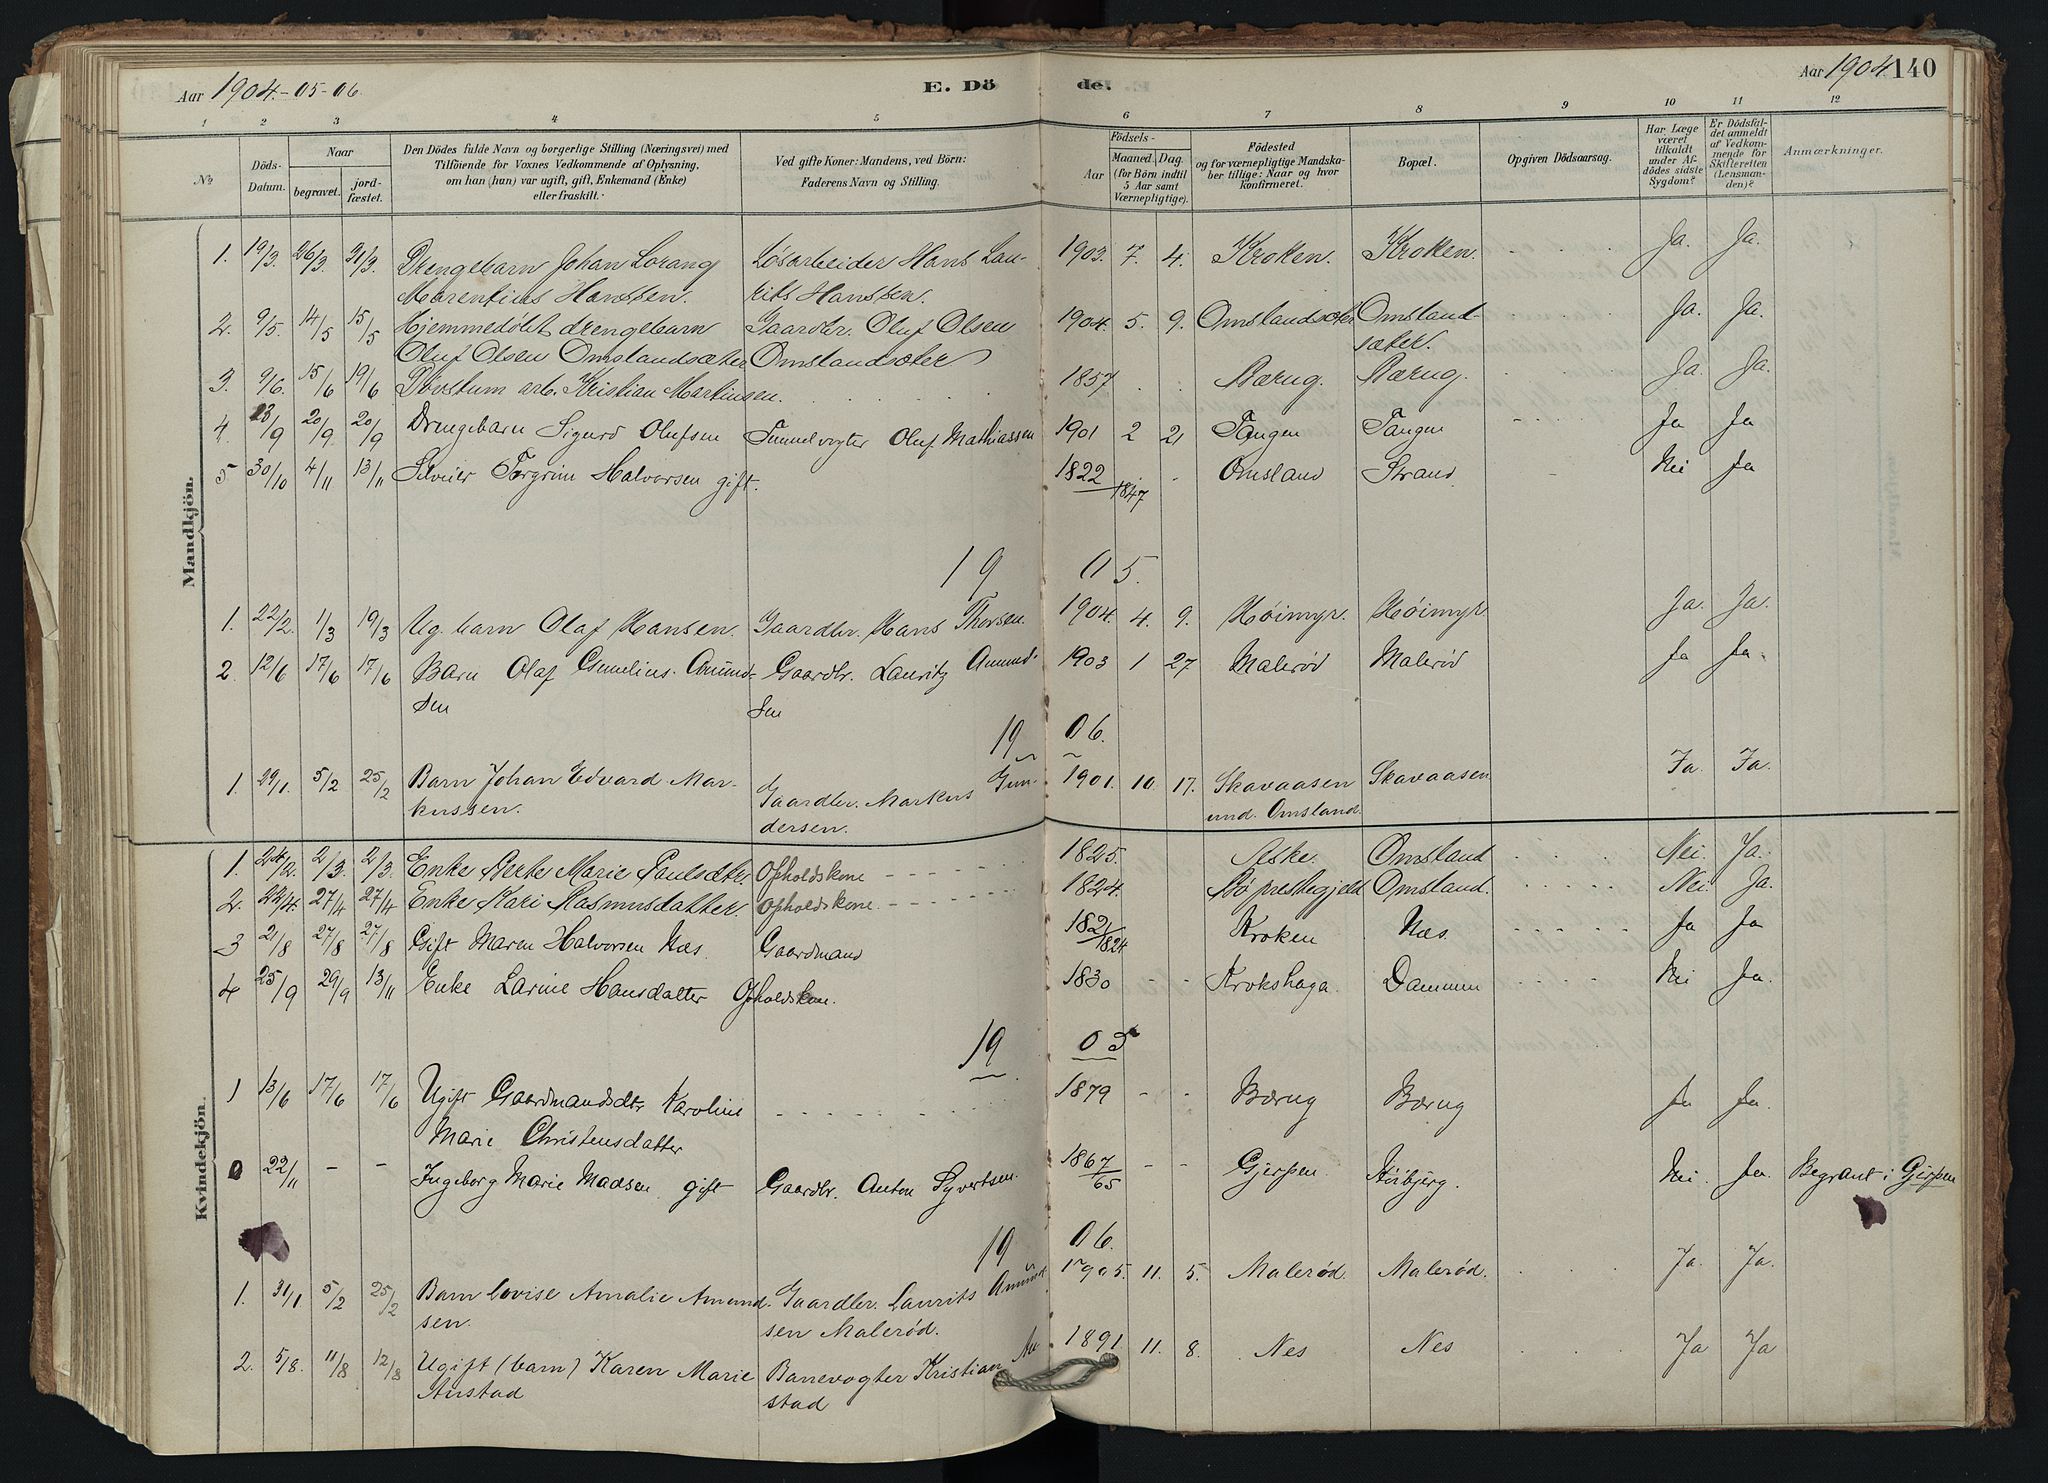 Aar 1904.-05-06. E. Dö de. Aar 1904. 140
1 2 3 4 5 6 7 8 9 10 11 12
No
Döds-Datum.
Naar
begravet.
jord-fæstet.
Den Dödes fulde Navn og borgerlige Stilling (Næringsvei) med
Tilföiende for Voxnes Vedkommende af Oplysning,
om han (hun) var ugift, gift, Enkemand (Enke)
eller fraskilt.
Ved gifte Koner: Mandens, ved Börn:
Faderens Navn og Stilling.
Födsels-
Aar
Maaned. Dag.
(for Börn indtil
5 Aar samt
Værnepligtige).
Födested
og for værnepligtige Mandska-
ber tillige: Naar og hvor
konfirmeret.
Bopæl.
Opgiven Dödsaarsag.
Har Læge
været
tilkaldt
under Af-
dödes sidste
Sygdom?
Er Dödsfal-
det anmeldt
af Vedkom-
mende for
Skifteretten
(Lensman-
den)?
Anmærkninger.
Mandkjön.
1. 19/3. 26/3. 31/3. Drengebarn Johan Lorang Løsarbeider Hans Lau- 1903. 7. 4. Kroken. Kroken. Ja. Ja.
Marentius Hanssen. rits Hanssen.
2. 9/5. 14/5 15/5 Hjemmedøbt drengebarn Gaardbr. Oluf Olsen 1904. 5. 9. Omslandsæter Omsland- Ja. Ja.
Oluf Olsen Omslandsæter Omslandsæter sæter.
3. 9/6. 15/6 19/6 Døvstum arb. Kristian Martinsen. 1857 Bærug. Bærug. Ja. Ja.
4. /9 20/9. 20/9 Drengebarn Sigurd Olufsen Tunnelvogter Oluf Mathiassen 1901 2 21 Tangen Tangen Ja Ja
5 30/10 4/11 13/11 Torgrim Halvorsen gift. 1822 - Omsland Strand Nei Ja
1847
19 05.
1. 22/2. 1/3 19/3 Ug. barn Olaf Hansen. Gaardbr. Hans Thorsen. 1904. 4. 9. Høimyr. Høimyr. Ja. Ja.
2. 12/6 17/6 17/6 Barn Olaf Cornelius Amund- Gaardbr. Lauritz Amund- 1903 1 27 Malerød Malerød Ja Ja.
sen sen
19 06.
1. 29/1. 5/2 25/2 Barn Johan Edvard Mar- Gaardbr. Markus Gun- 1901. 10. 17. Skavaasen Skavaasen Ja. Ja.
kussen. dersen. und. Omsland.
Kvindekjön.
1. 24/2. 2/3. 2/3. Enke Berte Marie Paulsdtr. Opholdskone 1825. Aske. Omsland Nei. Ja.
2. 22/4. 27/4 27/4 Enke Kari Rasmusdatter. Opholdskone 1824. Bø prestegjeld Omsland. Nei. Ja.
3 21/8 27/8 27/8 Gift Maren Halvorsen Næs. Gaardmand 1821 Kroken Næs. Ja Ja
1824
4 25/9 29/9 13/11 Enke Larine Hansdatter Opholdskone. 1830 - - Krokshaga Dammen Nei Ja.
19 05
1 13/6 17/6 17/6 Ugift Gaardmandsdtr Karoline 1879 - - Bærug Bærug Ja Ja.
Marie Christensdatter
0 22/11 - - Ingeborg Marie Madsen gift Gaardbr. Anton Syvertsen. 1867 - - Gjerpen. Høibjerg. Nei. Ja. Begravet i Gjerpen
65
19 06.
1. 31/1 5/2 25/2 Barn Lovise Amalie Amund- Gaardbr. Laurits Amund- 1905. 11. 5. Malerød. Malerød. Ja. Ja.
sen. sen Malerød.
2. 5/8. 11/8 12/8 Ugift (barn) Karen Marie Banevogter Kristian Au- 1891. 11. 8. Nes Nes Ja Ja
Austad stad